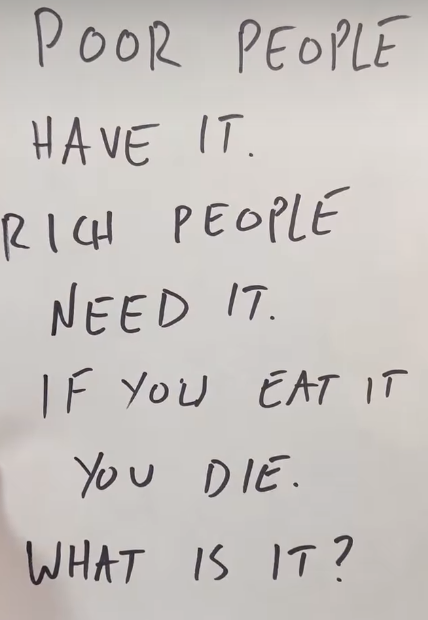 POOR PEOPLE
HAVE IT.
RICH PEOPLE
NEED IT.
IF YOU EAT IT
YOU DIE.
WHAT IS IT?